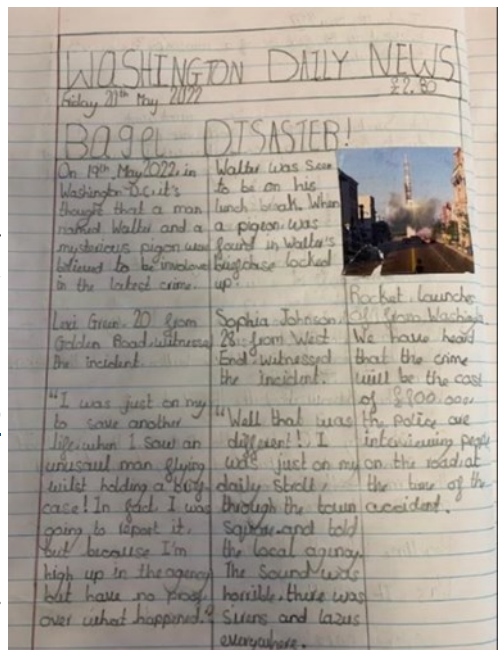 WASHINGTON DAILY NEWS
Friday 20th May 2022
£2.80
Bagel DISASTER!
On 19th May 2022, in
Washington D.C, it's
thought that a man
named Walter and a
mysterious pigon was
believed to be involove
in the latest crime.
Lexi Green, 20 from
Golden Road, witnesse
the incident.
"I was just on my
to save another
life, when I saw an
unusaul man flying
wilst holding a brif
case! In fact, I was
going to report it,
but because I'm
high up in the agency
but have no proof
over what happened."
Walter was seen
to be on his
lunch break. When
a pigeon was
found in Walter's
briefcase locked
up!
Sophia Johnson,
28, from West
End witnessed
the incident.
"Well that was
different! I
was just on my
daily stroll,
through the town
square and told
the local agency.
The sound was
horrible, there was
sirens and lazus
everywhere.
Rocket launches
of from Washing
We have heard
that the crime
will be the cost
of £800,000
the police are
interviewing peple
on the road, at
the time of the
accident.